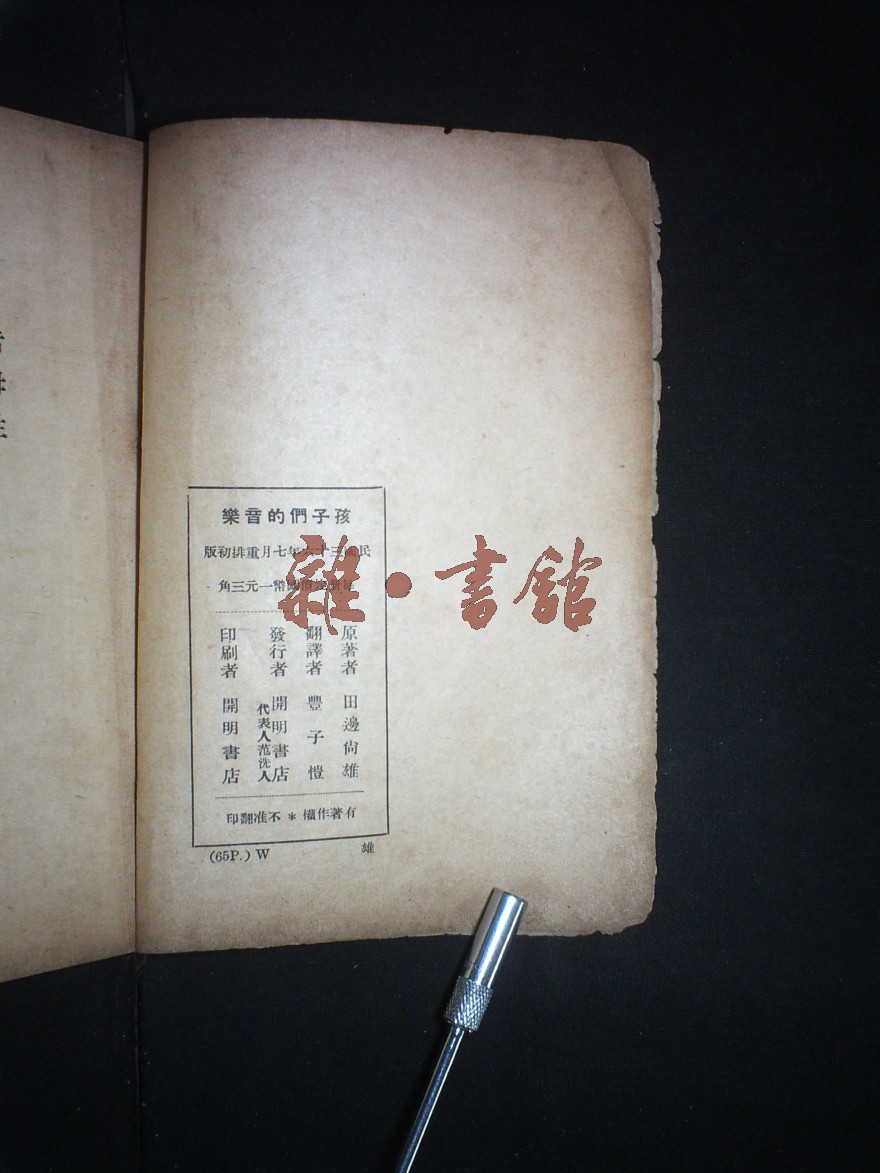 孩子們的音樂
民國三十六年七月重排初版
定價國幣一元三角
原著者 田邊尚雄
翻譯者 豐子愷
發行者 開明書店
代表人范洗人
印刷者 開明書店
有著作權 * 不准翻印
(65P.) W 雄
雜·書館